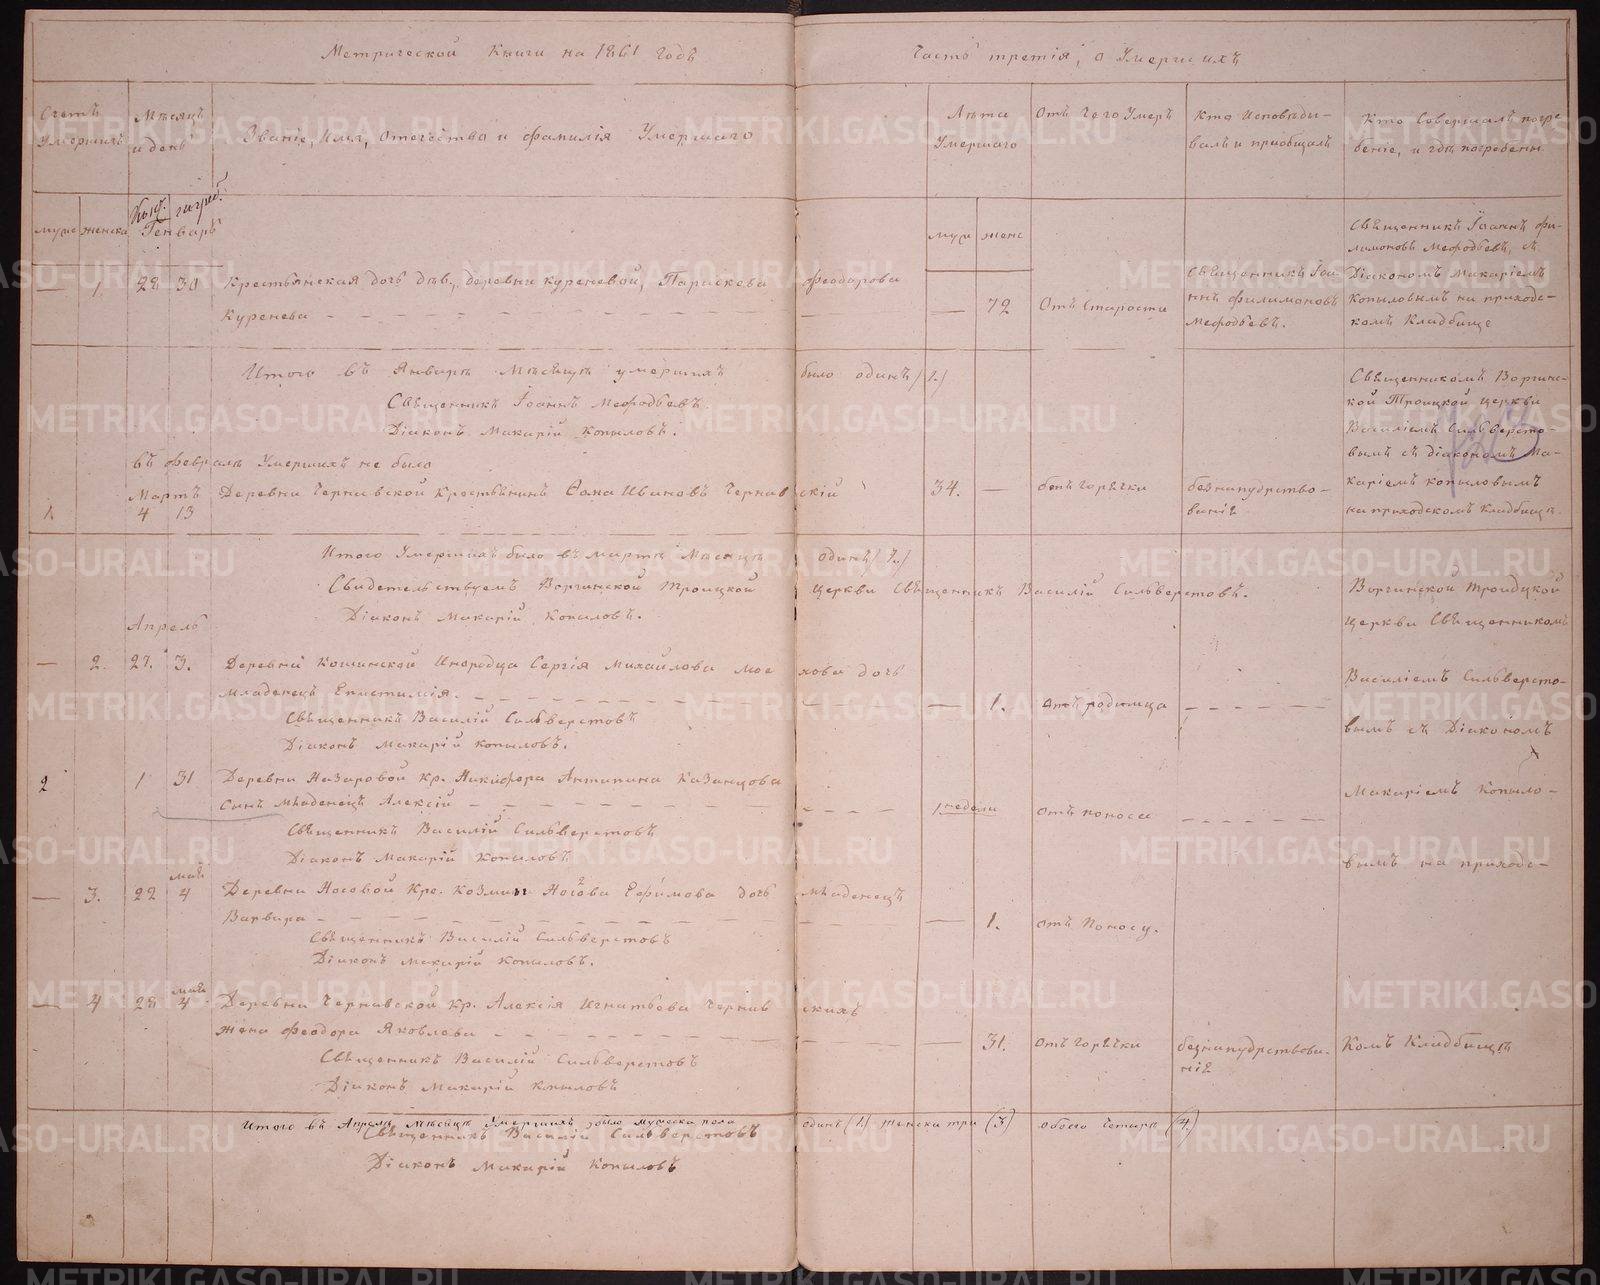 Метрической Книги на 1861 годъ
Часть третія, о Умершихъ
Счетъ Умершихъ
Мѣсяцъ и день
Званіе, Имя, отечество и фамилія Умершаго
Лѣта Умершаго
Отъ Чего Умеръ
Кто Исповѣди-
валъ и приобщалъ
Кто Совершалъ погре
беніе, и гдѣ погребены
муже женска
Генваръ
муж женс
1. 28 30 Крестьянская дочь дѣв., деревни куреневой, Параскева феодорова
Куренева
72 Отъ Старости
Священникъ Іоа
ннъ филимоновъ
Мефодьевъ.
Священникъ Іоаннъ фи-
лимоновъ Мефодьевъ, съ
Діакономъ Макаріемъ
Копыловымъ на приходс-
комъ Кладбище
Итого въ Январѣ Мѣсяцѣ умершихъ было одинъ /1./
Священникъ Іоаннъ Мефодьевъ.
Діаконъ Макарій Копыловъ.
въ февралѣ Умершихъ не было
Мартъ
1. 4 13 Деревни Чернавской Крестьянинъ Фома Ивановъ Чернавскій
34. —
горячки
безнапудрство-
ванія
Священникомъ Воргинс-
кой Троицкой церкви
Василіемъ Сильверсто-
вымъ съ діакономъ Ма-
каріемъ Копыловымъ
на приходскомъ Кладбищѣ.
Итого Умершихъ было въ мартѣ Мѣсяцѣ Одинъ /1./
Свидетельствуемъ Воргинской Троицкой церкви Священникъ Василій Сильверстовъ.
Діаконъ Макарій Копыловъ.
Апрель
— 2. 27. 3. Деревни Кошинской Инородца Сергія Михайлова дочь
младенецъ Епистимія.
— 1. Отъ родимца
Священникъ Василій Сильверстовъ
Діаконъ Макарій Копыловъ.
2 1 31 Деревни Назаровой Кр. Никифора Антипина Казанцова
Сынъ младенецъ Алексій
1 недели отъ поноса
Священникъ Василій Сильверстовъ
Діаконъ Макарій Копыловъ
май
— 3. 22 4 Деревни Носовой Кре. Козмы Носова Ефимова дочь младенецъ
Варвара
— 1. отъ Поносу.
Священникъ Василій Сильверстовъ
Діаконъ Макарій Копыловъ.
май
— 4 28 4 Деревни Чернавской Кр. Алексія Игнатьева Чернавскихъ
жена феодора Яковлева
— 31. отъ горячки
безнапудрствова-
нія
Священникъ Василій Сильверстовъ
Діаконъ Макарій Копыловъ
Воргинской Троицкой
церкви Священникомъ
Василіемъ Сильверсто-
вымъ съ Діакономъ
Макаріемъ Копыло-
вымъ на приходс-
комъ Кладбищѣ
Итого въ Апреле Мѣсяцѣ Умершихъ было мужеска пола одинъ (1.) женска три (3) обоего Четыре (4.)
Священникъ Василій Сильверстовъ
Діаконъ Макарій Копыловъ
METRIKI.GASO-URAL.RU